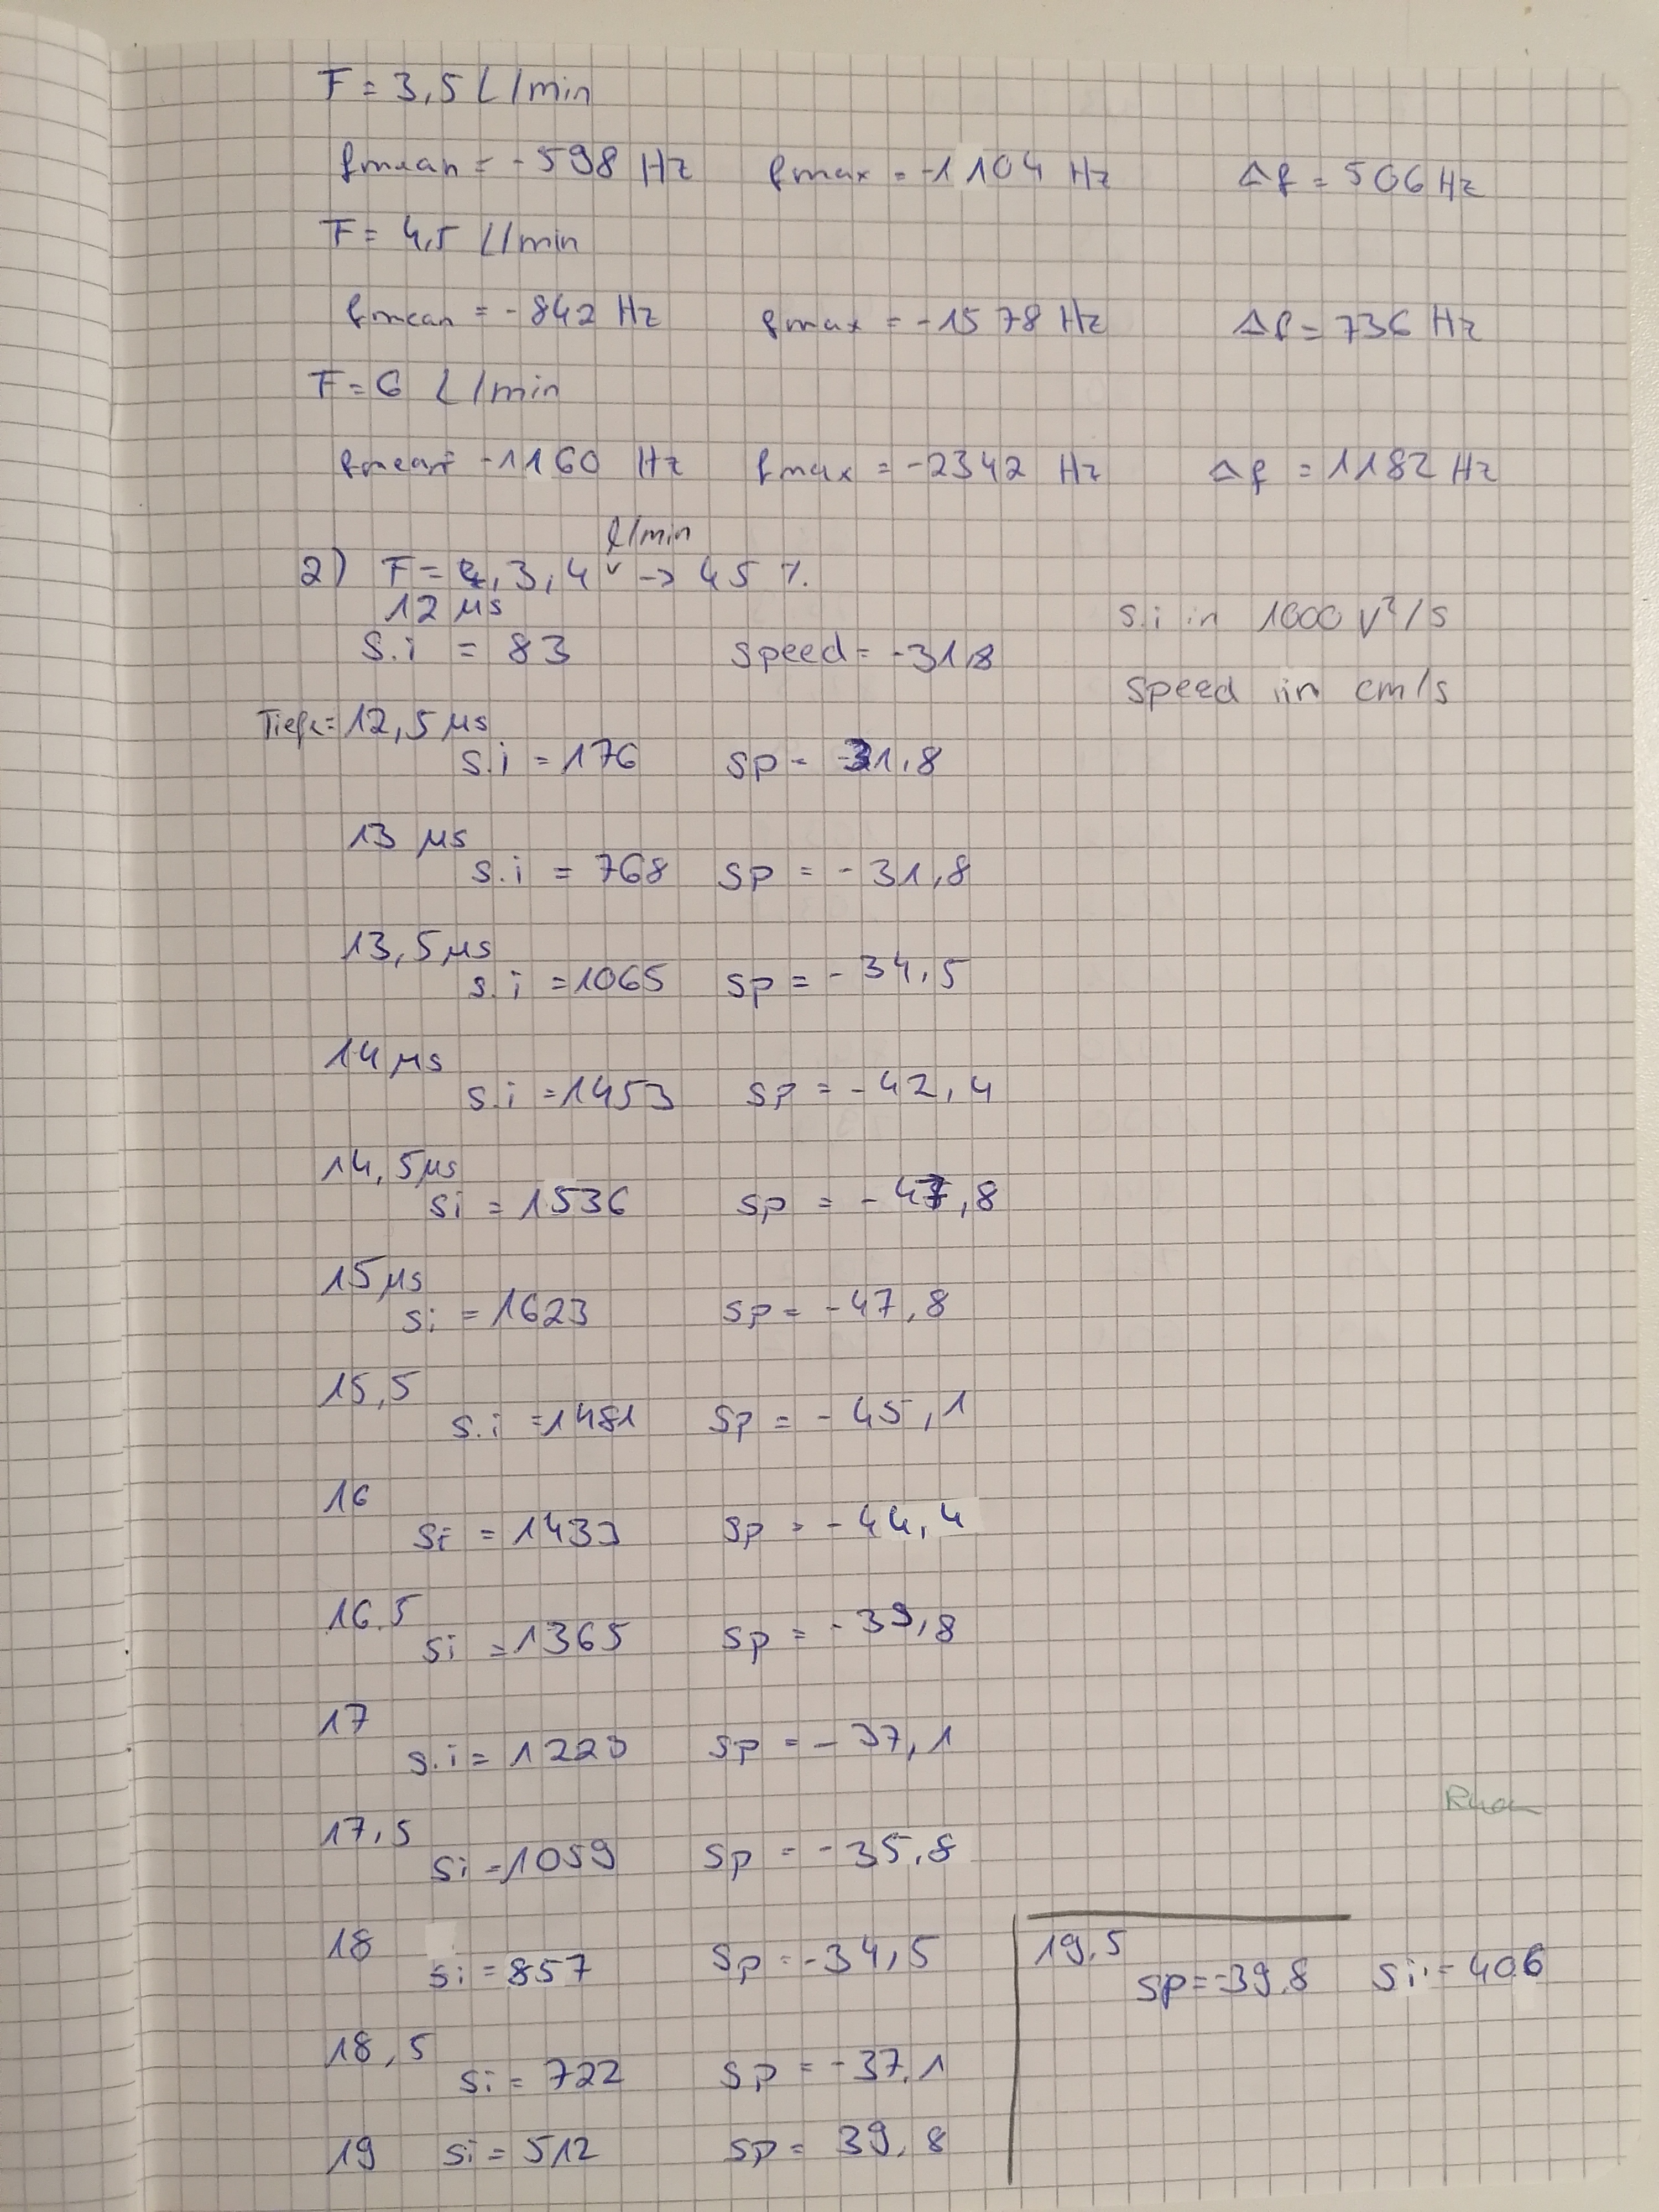 F = 3,5 L/min
fmean = -598 Hz fmax = -1104 Hz Δf = 506 Hz
F = 4,5 L/min
fmean = -842 Hz fmax = -1578 Hz Δf = 736 Hz
F = 6 L/min
fmean = -1160 Hz fmax = -2342 Hz Δf = 1182 Hz
l/min
2) F = 3,4 -> 45 %
12 µs
s.i in 1000 V²/s
S.i = 83 speed = -31,8
speed in cm/s
Tiefe = 12,5 µs
s.i = 176 sp = -31,8
13 µs
s.i = 768 sp = -31,8
13,5 µs
s.i = 1065 sp = -34,5
14 µs
s.i = 1453 sp = -42,4
14,5 µs
si = 1536 sp = -47,8
15 µs
si = 1623 sp = -47,8
15,5
s.i = 1481 sp = -45,1
16
si = 1433 sp = -44,4
16.5
si = 1365 sp = -39,8
17
s.i = 1223 sp = -37,1
17,5
si = 1059 sp = -35,8
18
si = 857 sp = -34,5
18,5
si = 722 sp = -37,1
19 si = 512 sp = 39,8
19,5
sp = -39,8 si = 406